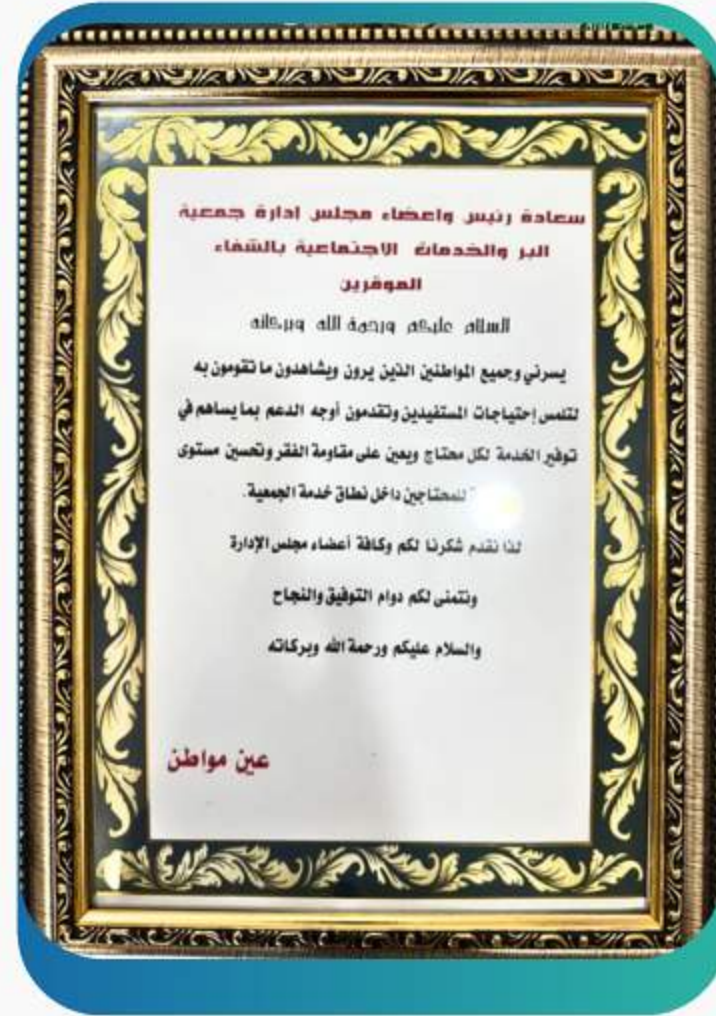 سعادة رئيس واعضاء مجلس ادارة جمعية
البر والخدمات الاجتماعية بالشفاء
الموقرين
السلام عليكم ورحمة الله وبركاته
يسرني وجميع المواطنين الذين يرون ويشاهدون ما تقومون به
لتلمس إحتياجات المستفيدين وتقدمون أوجه الدعم بما يساهم في
توفير الخدمة لكل محتاج ويعين على مقاومة الفقر وتحسين مستوى
للمحتاجين داخل نطاق خدمة الجمعية.
لذا نقدم شكرنا لكم وكافة أعضاء مجلس الإدارة
ونتمنى لكم دوام التوفيق والنجاح
والسلام عليكم ورحمة الله وبركاته
عين مواطن